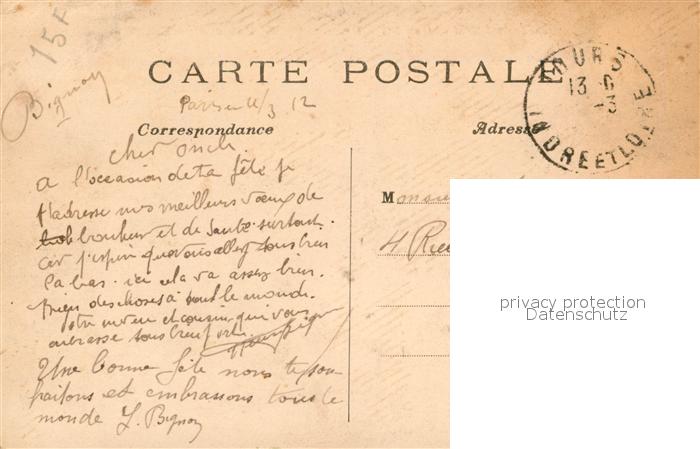 15F
Bignon
CARTE POSTALE
Paris 11/3 12
TOURS
13 - 6
- 3
INDRE ET LOIRE
Correspondance
Adresse
cher oncle
A l'occasion de ta fête je
t'adresse mes meilleurs vœux de
bonheur et de santé surtout.
car j'espère que vous allez tous bien
la bas. ici cela va assez bien.
bien des choses à tout le monde.
votre neveu et cousin qui vous
embrasse tous bien fort.
Une bonne fête nous te sou
haitons et embrassons tous le
monde Y. Bignon
4 Rue
privacy protection
Datenschutz